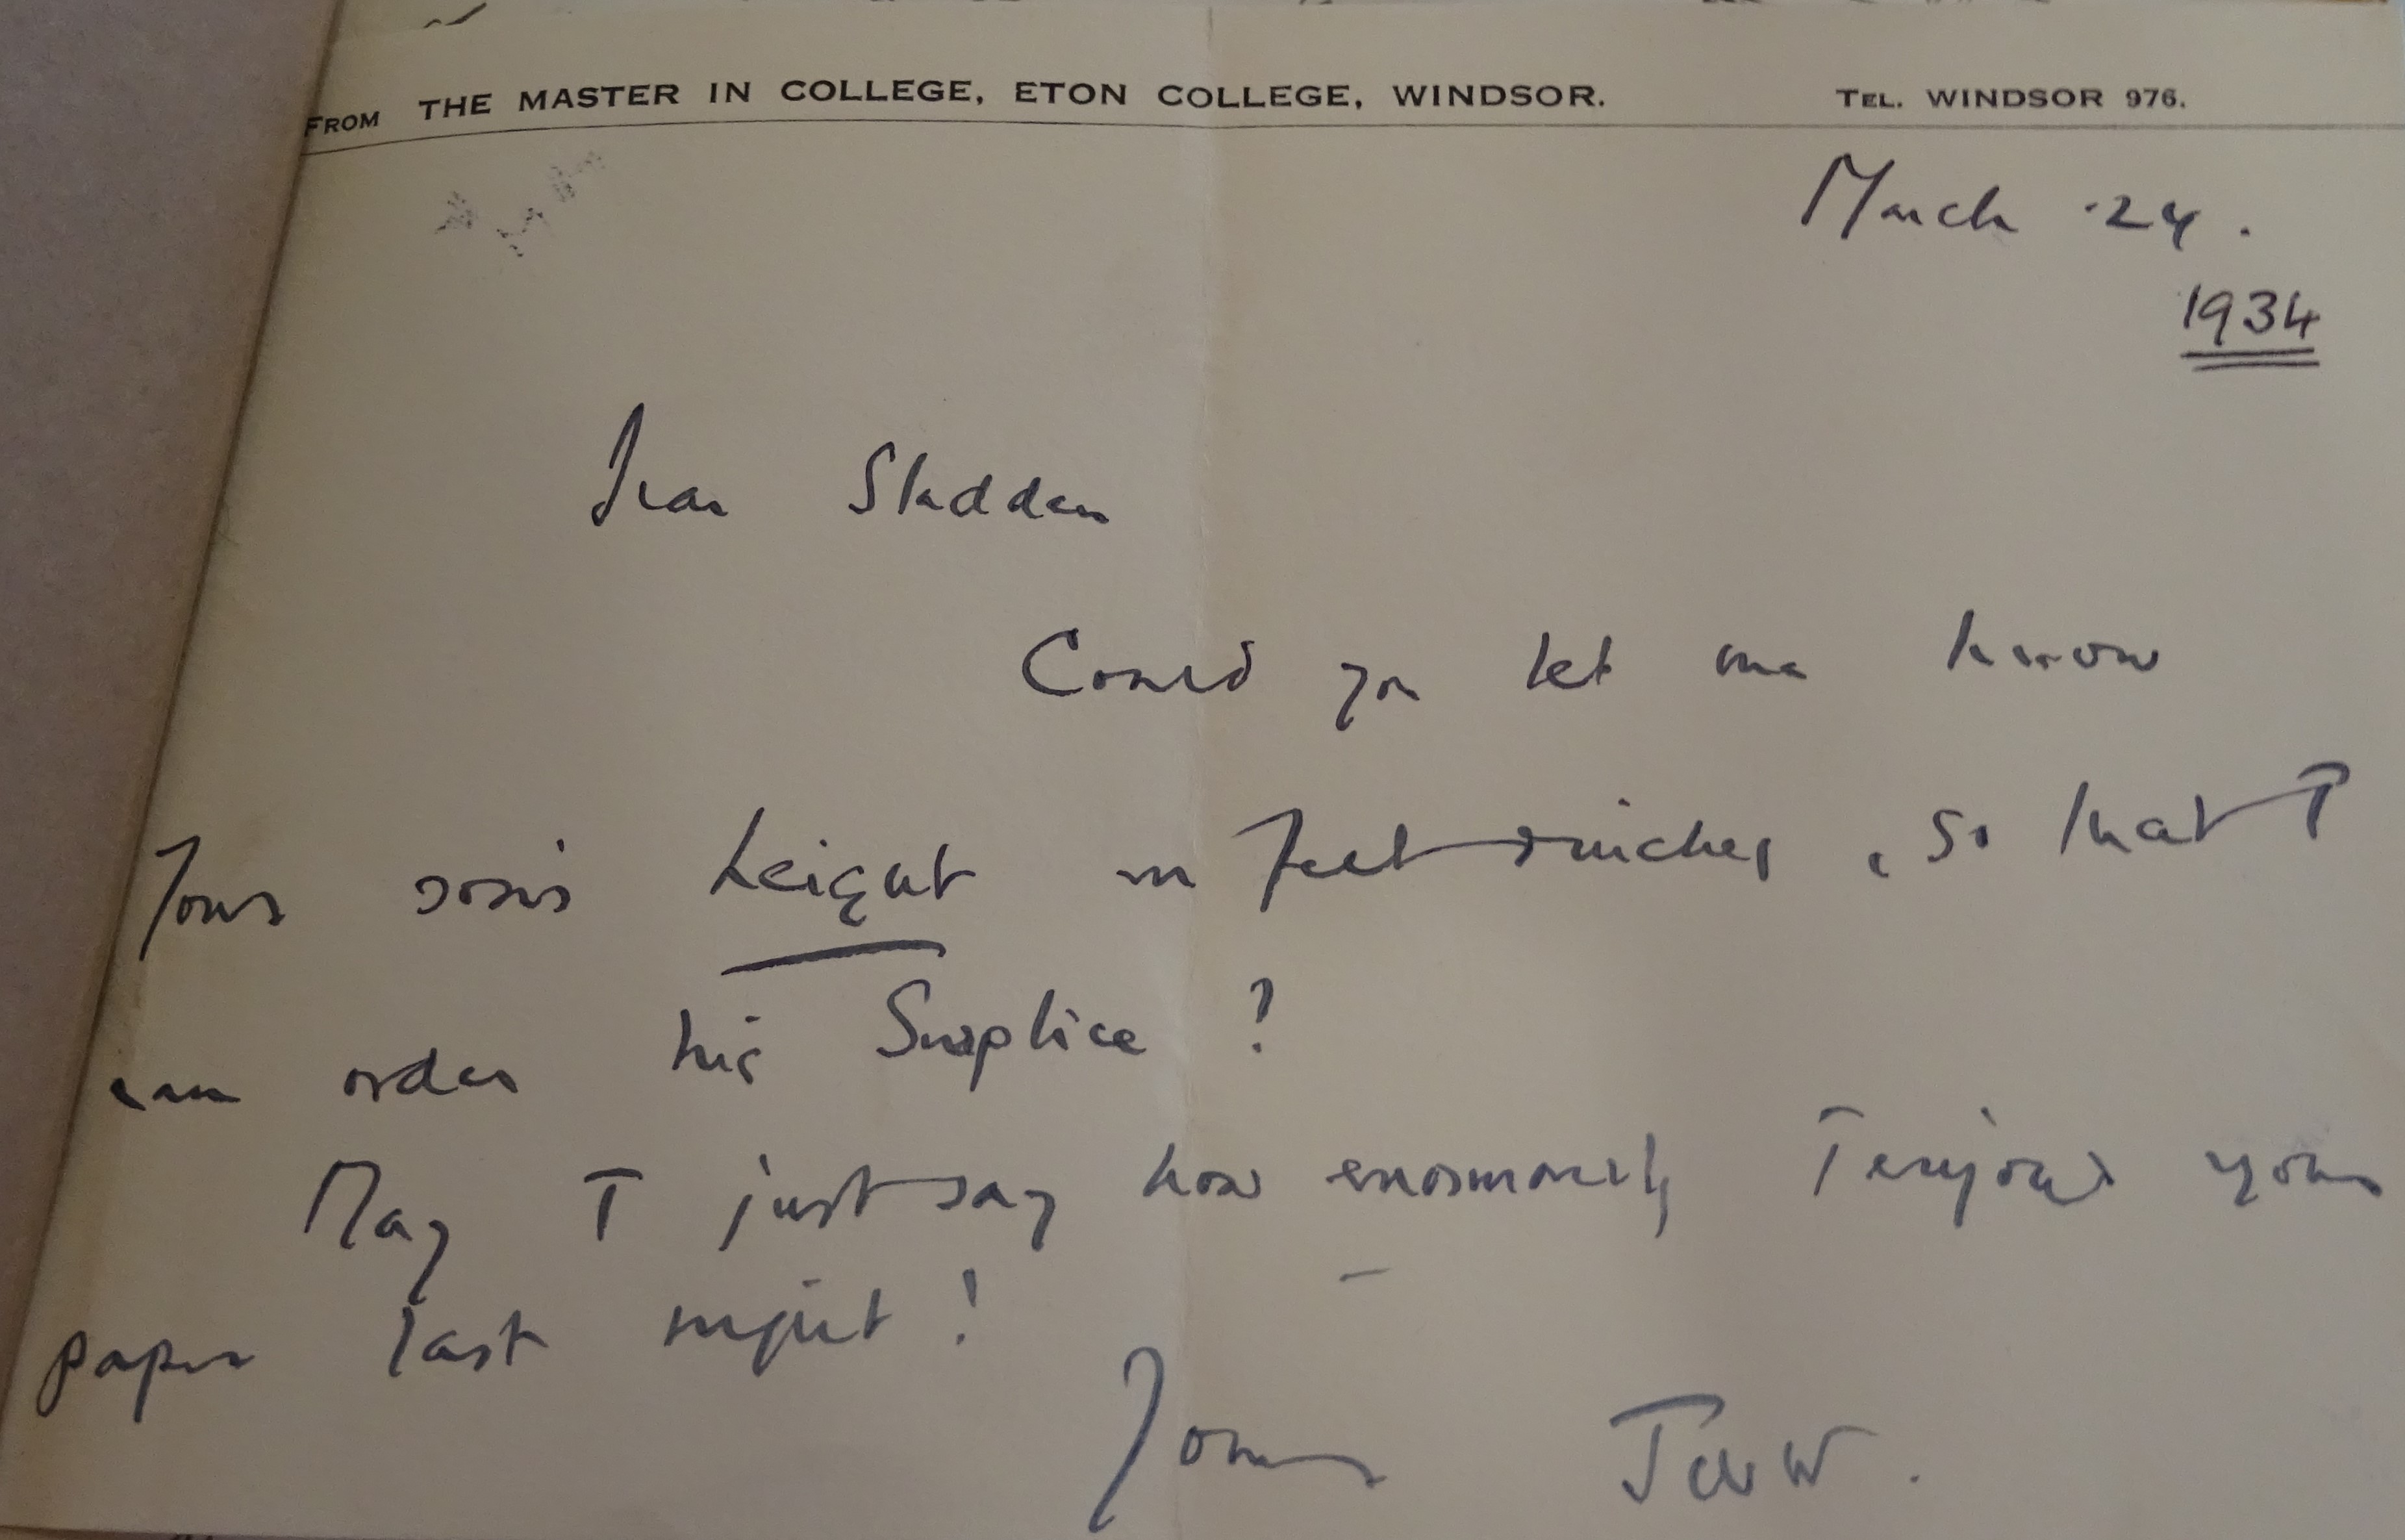 FROM THE MASTER IN COLLEGE, ETON COLLEGE, WINDSOR. TEL. WINDSOR 976.
March 24.
1934
Dear Sladden
Could you let me know
your son's height in feet & inches, so that I
can order his Surplice ?
May I just say how enormously I enjoyed your
paper last night !
Yours